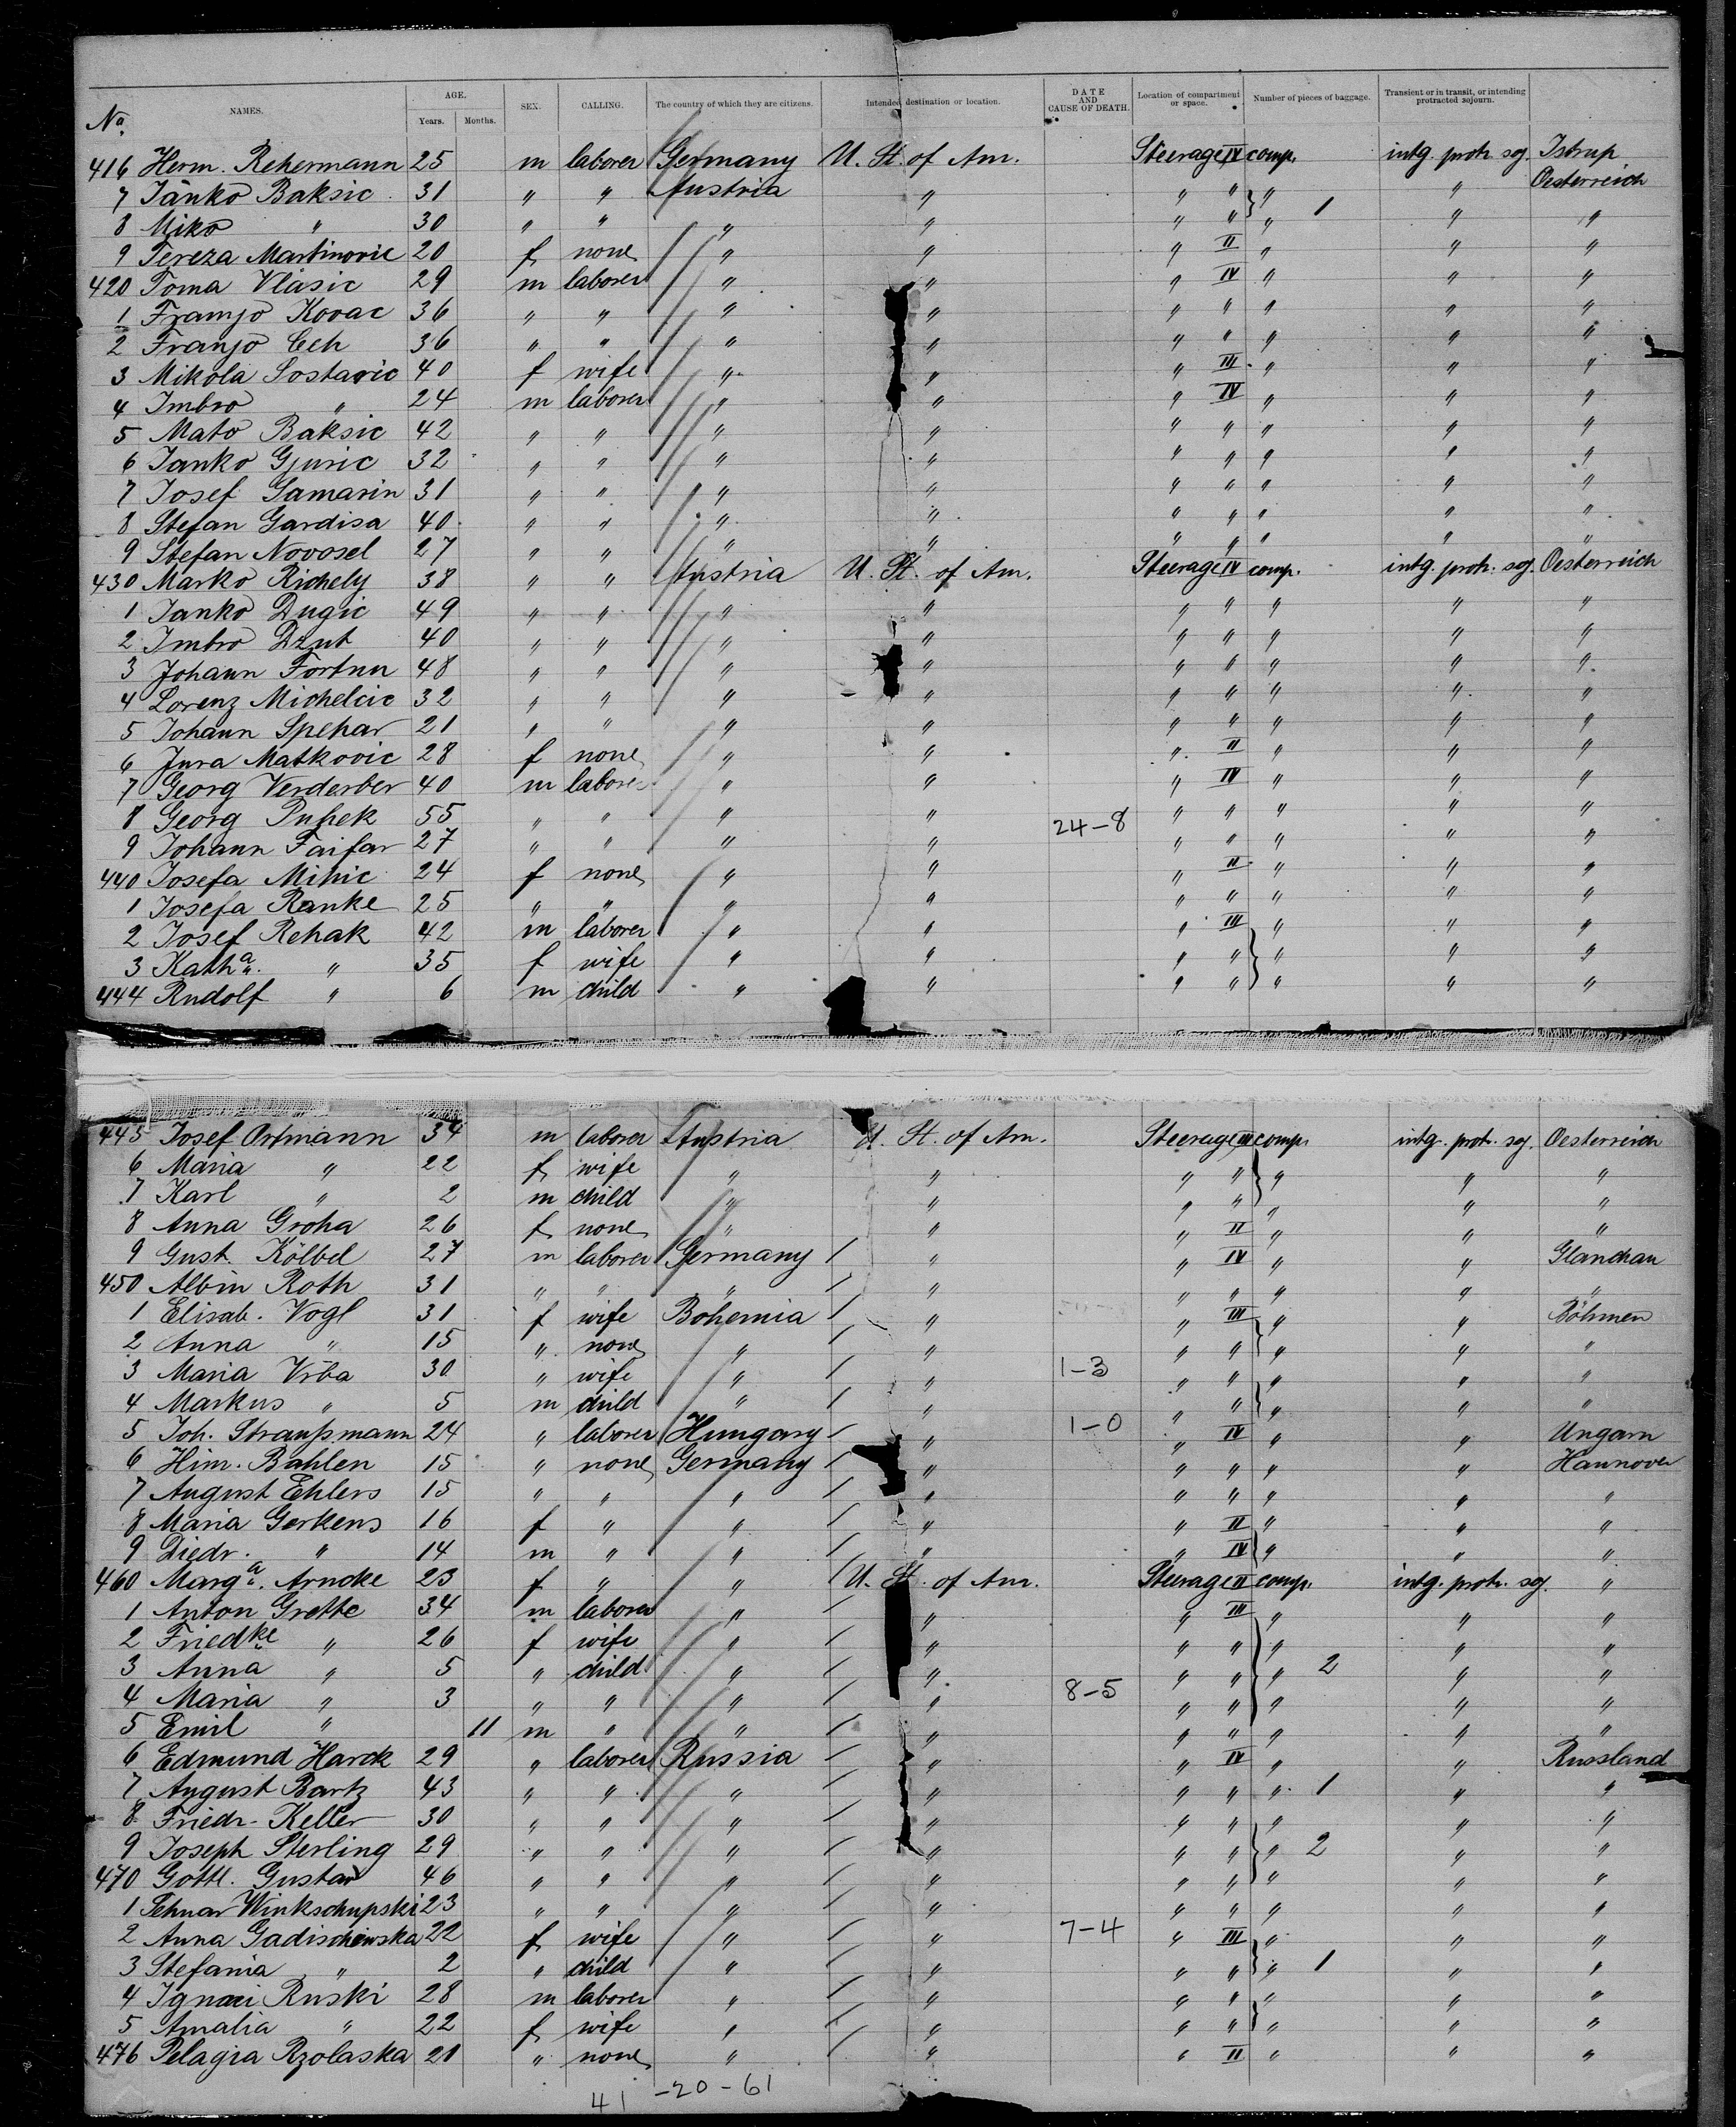 NAMES. AGE. SEX. CALLING. The country of which they are citizens. Intended destination or location. DATE AND CAUSE OF DEATH. Location of compartment or space. Number of pieces of baggage. Transient or in transit, or intending protracted sojourn.
No. Years. Months.
416 Herm. Rehermann 25 m laborer Germany U. St. of Am. Steerage IV comp. intg. protr. soj. Istrup
7 Janko Baksic 31 " " Austria " " " " " Oesterreich
8 Miko " 30 " " " " " " " 1 " "
9 Tereza Martinovic 20 f none " " " II " " "
420 Toma Vlasic 29 m laborer " " " IV " " "
1 Franjo Kovac 36 " " " " " " " " "
2 Franjo Cch 36 " " " " " " " " "
3 Mikola Sostaric 40 f wife " " " III " " "
4 Imbro " 24 m laborer " " " IV " " "
5 Mato Baksic 42 " " " " " " " " "
6 Janko Gjuric 32 " " " " " " " " "
7 Josef Gamarin 31 " " " " " " " " "
8 Stefan Gardisa 40 " " " " " " " " "
9 Stefan Novosel 27 " " " " " " " " "
430 Marko Richely 38 " " Austria U. St. of Am. Steerage IV comp. intg. protr. soj. Oesterreich
1 Janko Dugic 49 " " " " " " " " "
2 Imbro Dzut 40 " " " " " " " " "
3 Johann Fortun 48 " " " " " " " " "
4 Lorenz Michelcic 32 " " " " " " " " "
5 Johann Spehar 21 " " " " " " " " "
6 Jura Matkovic 28 f none " " " II " " "
7 Georg Verderber 40 m laborer " " " IV " " "
8 Georg Pupek 55 " " " " 24-8 " " " " "
9 Johann Faifar 27 " " " " " " " " "
440 Josefa Mihic 24 f none " " " II " " "
1 Josefa Ranke 25 " " " " " " " " "
2 Josef Rehak 42 m laborer " " " III " " "
3 Katha. " 35 f wife " " " " " " "
444 Rudolf " 6 m child " " " " " " "
445 Josef Ortmann 34 m laborer Austria U. St. of Am. Steerage III comp. intg. protr. soj. Oesterreich
6 Maria " 22 f wife " " " " " " "
7 Karl " 2 m child " " " " " " "
8 Anna Groha 26 f none " " " II " " "
9 Gust. Kölbel 27 m laborer Germany " " IV " " Glauchau
450 Albin Roth 31 " " " " " " " " "
1 Elisab. Vogl 31 f wife Bohemia " " III " " Böhmen
2 Anna " 15 " none " " " " " " "
3 Maria Vrba 30 " wife " " 1-3 " " " " "
4 Markus " 5 m child " " " " " " "
5 Joh. Straußmann 24 " laborer Hungary " 1-0 " IV " " Ungarn
6 Hinr. Bahlen 15 " none Germany " " " " " Hannover
7 August Ehlers 15 " " " " " " " " "
8 Maria Gerkens 16 f " " " " II " " "
9 Diedr. " 14 m " " " " IV " " "
460 Marga. Arncke 23 f " " U. St. of Am. Steerage II comp. intg. protr. soj. "
1 Anton Grette 34 m laborer " " " III " " "
2 Friedke " 26 f wife " " " " " " "
3 Anna " 5 " child " " " " " 2 " "
4 Maria " 3 " " " " 8-5 " " " " "
5 Emil " 11 m " " " " " " " "
6 Edmund Harck 29 " laborer Russia " " IV " " Russland
7 August Bartz 43 " " " " " " " 1 " "
8 Friedr. Keller 30 " " " " " " " " "
9 Joseph Sterling 29 " " " " " " " 2 " "
470 Gottl. Gustav 46 " " " " " " " " "
1 Winkschupski 23 " " " " " " " " "
2 Anna Gadischewska 22 f wife " " 7-4 " III " " "
3 Stefania " 2 " child " " " " " 1 " "
4 Ruski 28 m laborer " " " " " " "
5 Amalia " 22 f wife " " " " " " "
476 Pelagia Rzolaska 21 " none " " " II " " "
41 -20-61